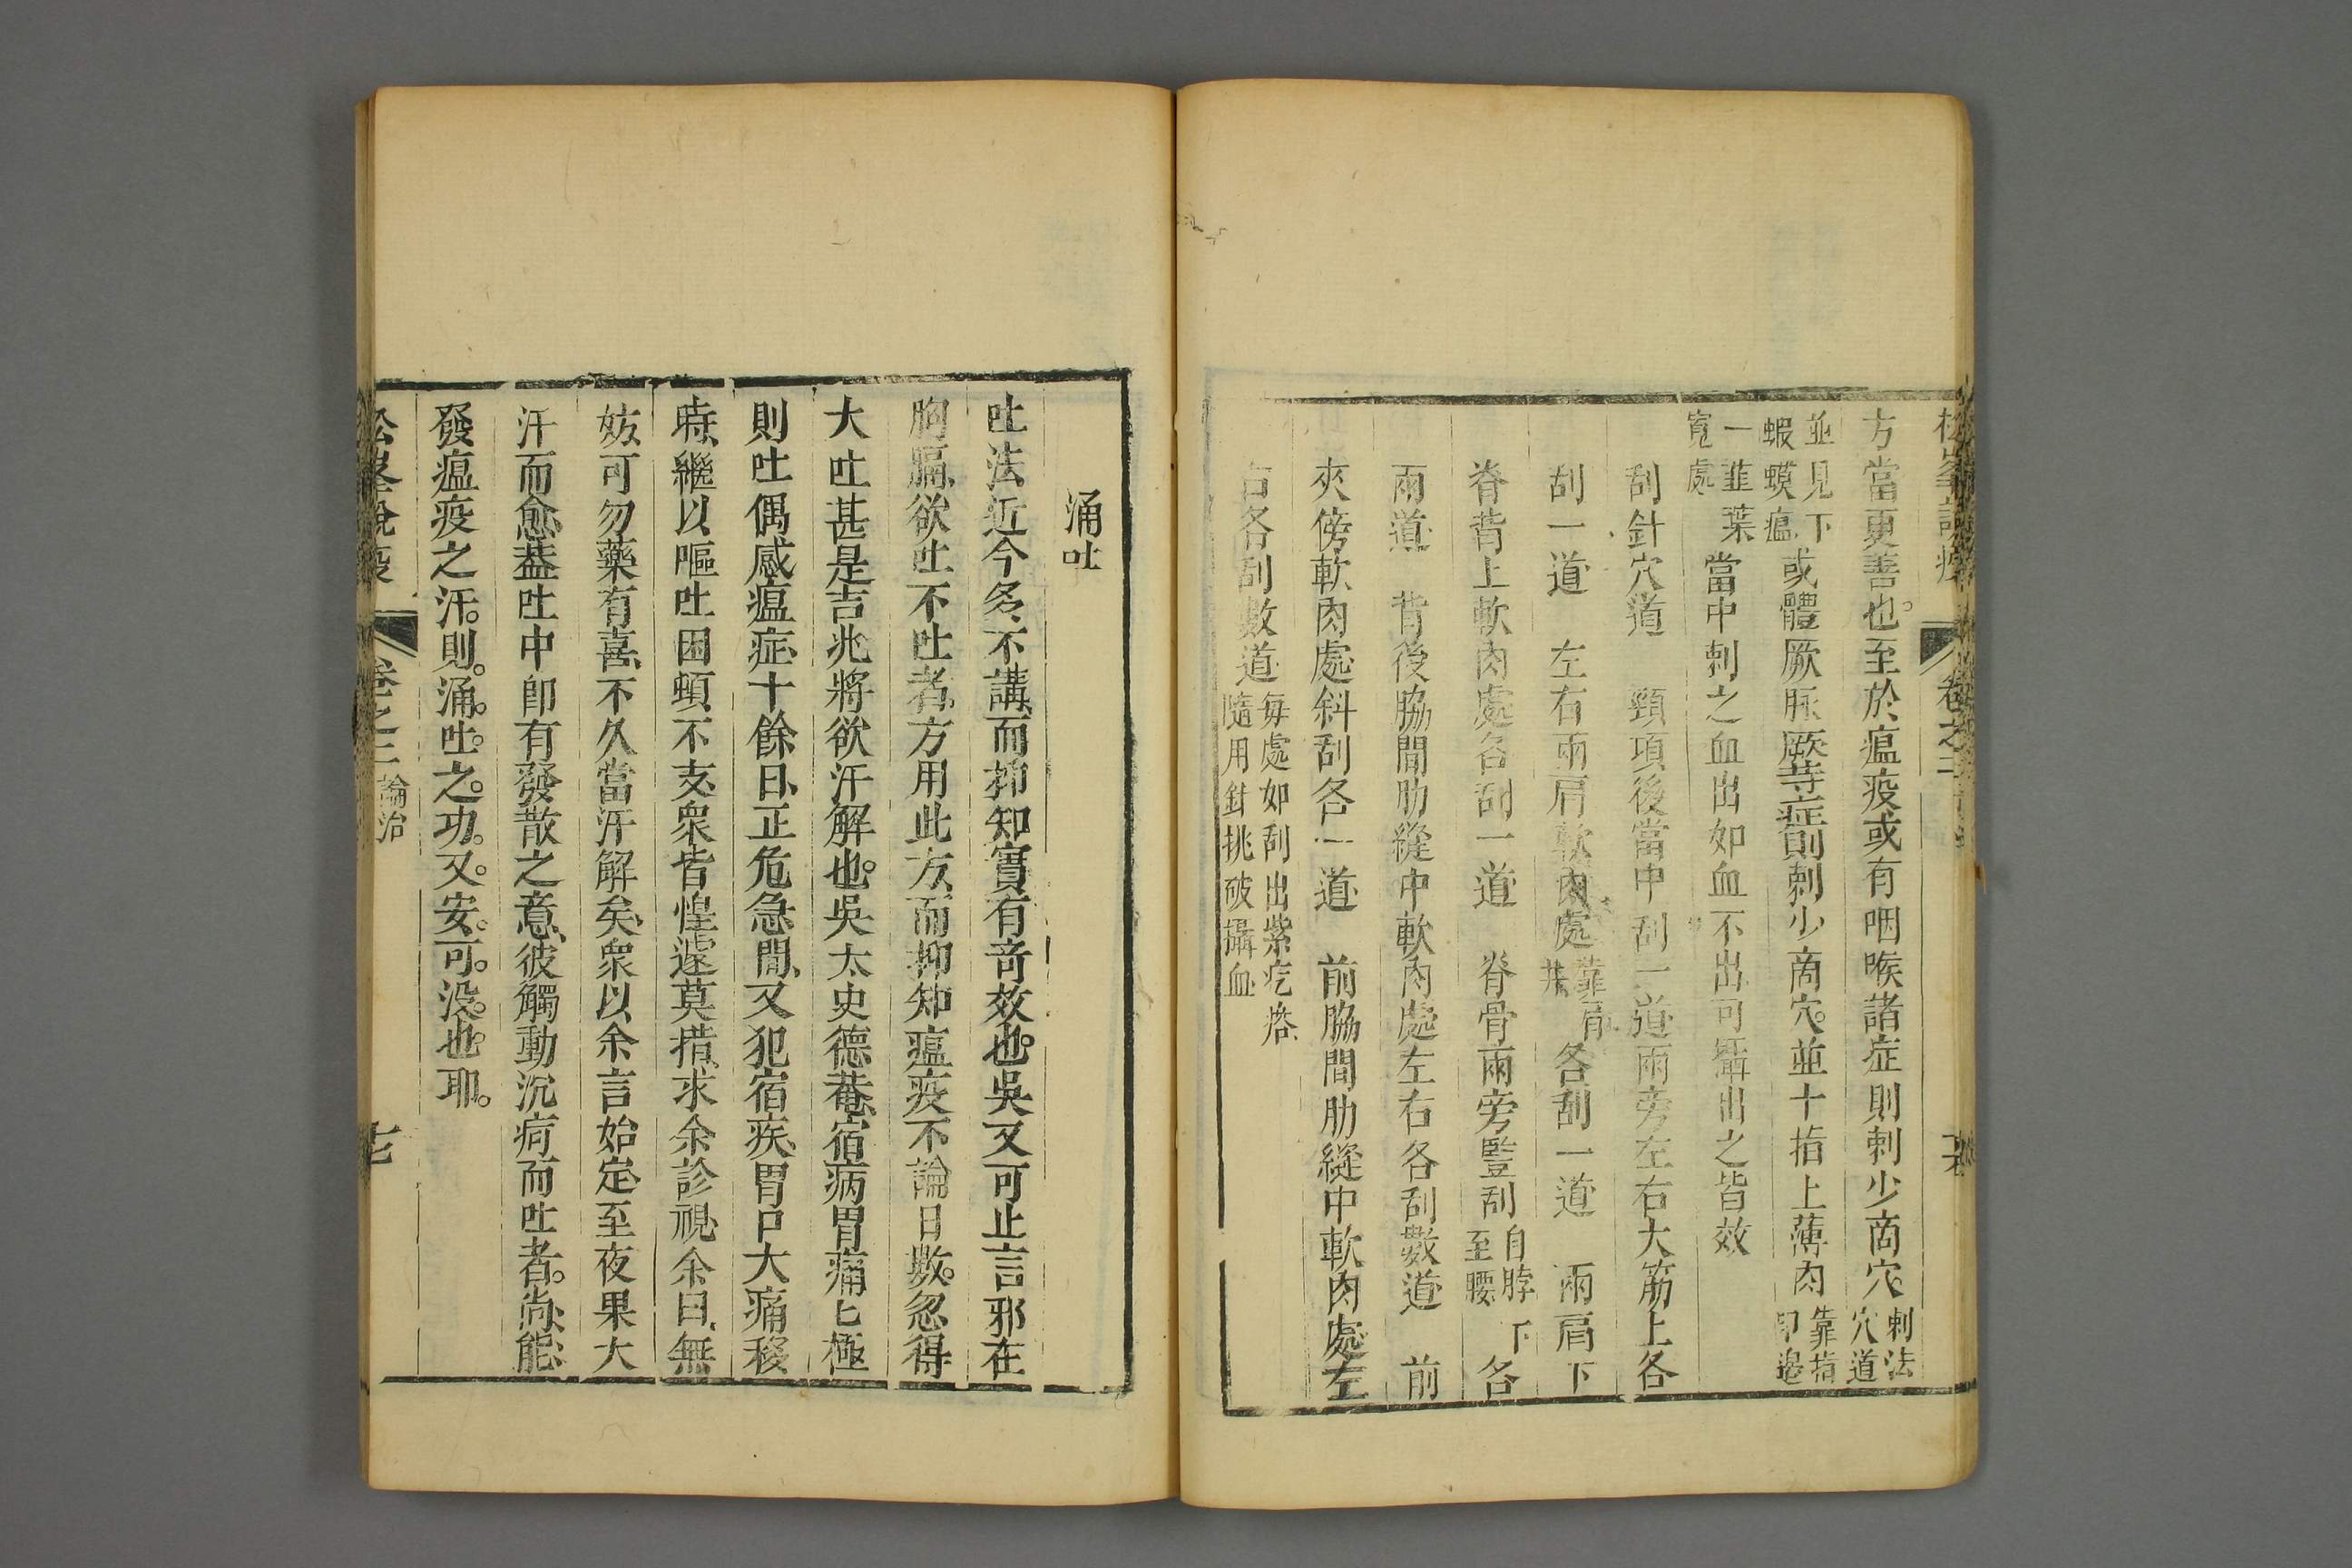 方當更善也。至於瘟疫或有咽喉諸症則刺少商穴。刺法穴道
並見下蝦蟆瘟或體厥脉厥等症則刺少商穴。並十指上薄肉靠指甲邊
一韭葉寬處當中刺之血出如血不出可攝出之皆效
刮針穴道　頸項後當中刮一道兩旁左右大筋上各
刮一道　左右兩肩軟肉處靠肩各刮一道　兩肩下
脊背上軟肉處各刮一道　脊骨兩旁豎刮自脖至腰下各
兩道　背後脇間肋縫中軟肉處左右各刮數道　前
夾傍軟肉處斜刮各一道　前脇間肋縫中軟肉處左
右各刮數道每處如刮出紫疙瘩隨用針挑破攝血
涌吐
吐法近今多不講、而抑知實有奇效也。吳又可止言邪在
胸膈、欲吐不吐者、方用此方、而抑知瘟疫不論日數。忽得
大吐甚是吉兆將欲汗解也。吳太史德菴、宿病胃痛匕極
則吐偶感瘟症、十餘日、正危急間、又犯宿疾、胃口大痛移
時、繼以嘔吐困頓不支、衆皆惶遽莫措、求余診視、余曰、無
妨、可勿藥有喜、不久當汗解矣、衆以余言始定、至夜果大
汗而愈、葢吐中卽有發散之意、彼觸動沉疴而吐者。尚能
發瘟疫之汗。則。涌。吐。之。功。又。安。可。没。也。耶。
松峯說疫　卷之二　論治　七